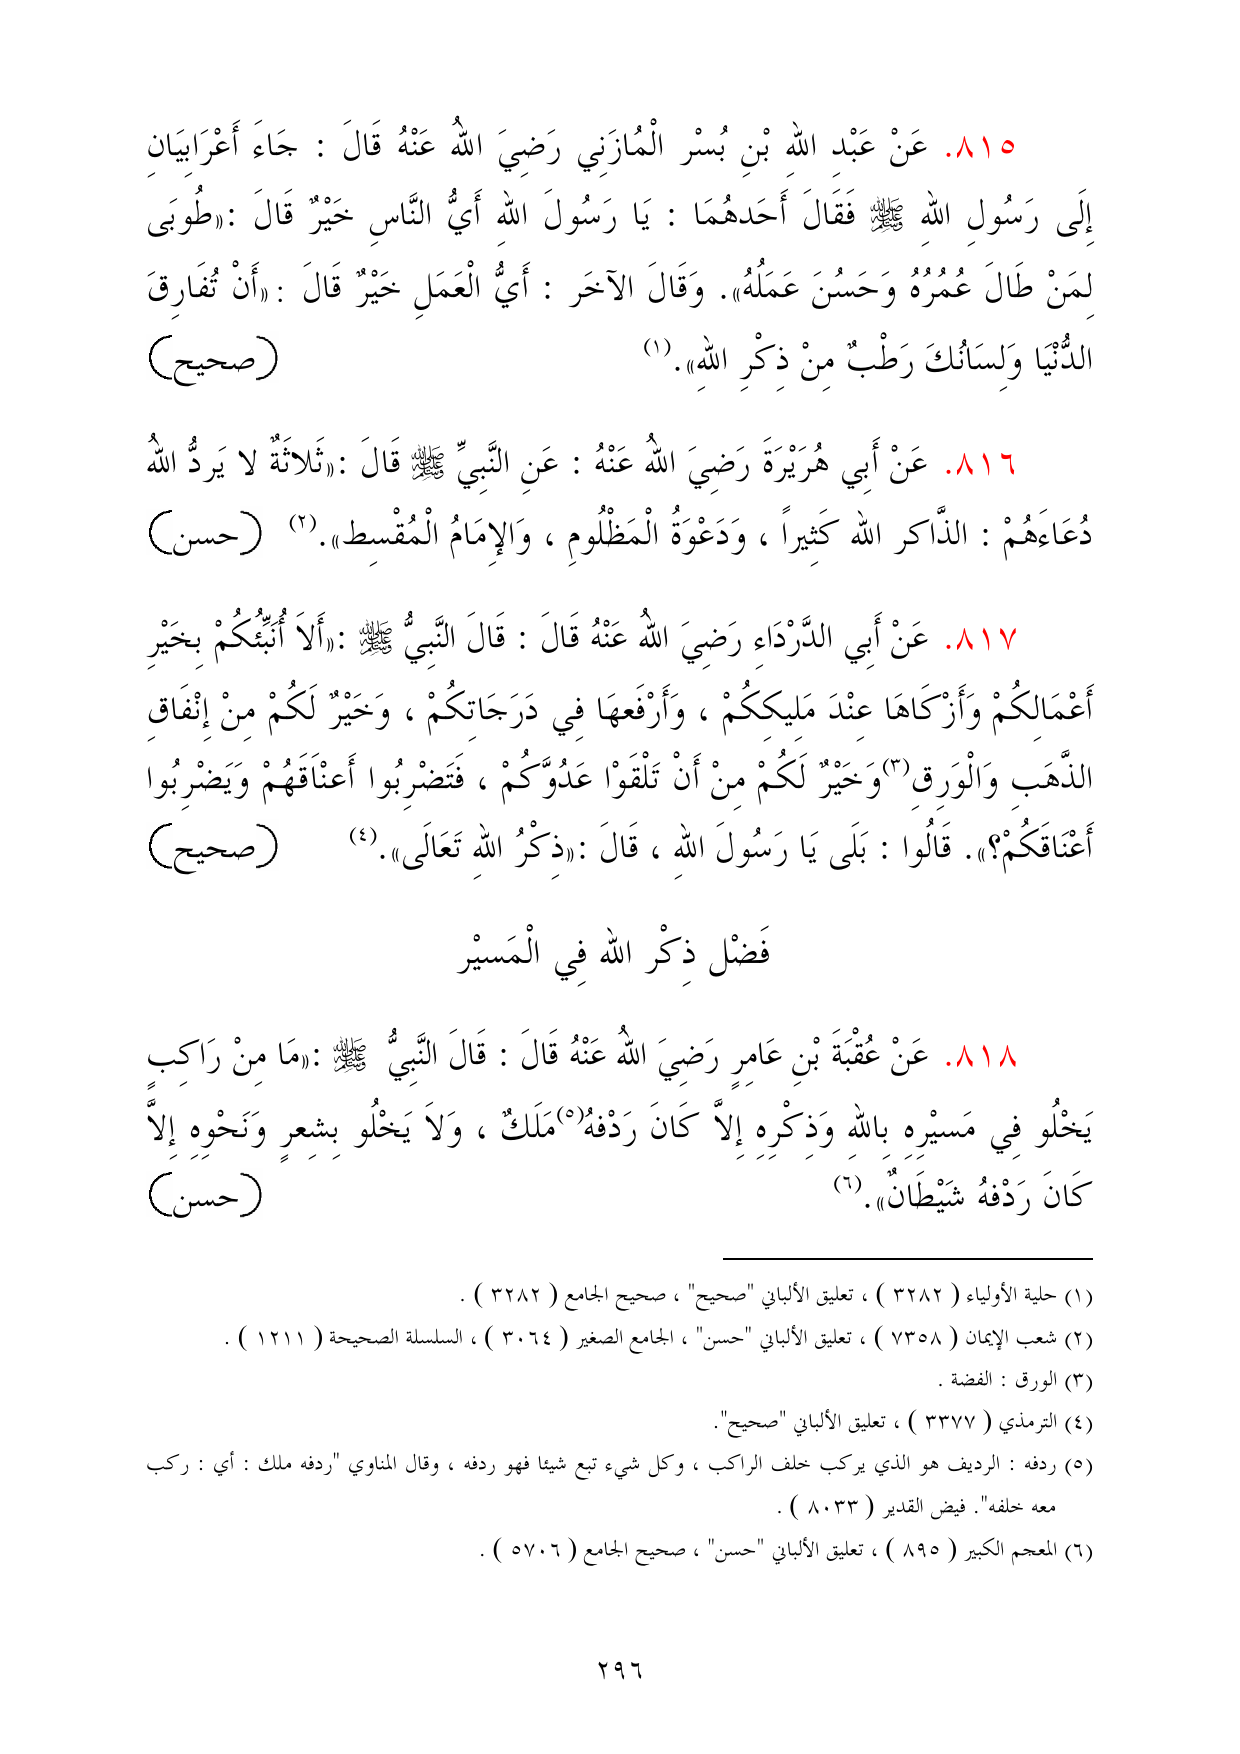 ٨١٥. عَنْ عَبْدِ اللهِ بْنِ بُسْرِ الْمُازَنِي رَضِيَ اللهُ عَنْهُ قَالَ : جَاءَ أَعْرَابِيَانِ
إِلَى رَسُولِ اللهِ ﷺ فَقَالَ أَحَدهُمَا : يَا رَسُولَ اللهِ أَيُّ النَّاسِ خَيْرٌ قَالَ :«طُوبَى
لِمَنْ طَالَ عُمُرُهُ وَحَسُنَ عَمَلُهُ». وَقَالَ الآخَر : أَيُّ الْعَمَلِ خَيْرٌ قَالَ :«أَنْ تُفَارِقَ
الدُّنْيَا وَلِسَانُكَ رَطْبٌ مِنْ ذِكْرِ اللهِ».(١) (صحيح)
٨١٦. عَنْ أَبِي هُرَيْرَةَ رَضِيَ اللهُ عَنْهُ : عَنِ النَّبِيِّ ﷺ قَالَ :«ثَلاثَةٌ لا يَردُّ اللهُ
دُعَاءَهُمْ : الذَّاكِر الله كَثِيراً ، وَدَعْوَةُ الْمَظْلُومِ ، وَالإِمَامُ الْمُقْسِط».(٢) (حسن)
٨١٧. عَنْ أَبِي الدَّرْدَاءِ رَضِيَ اللهُ عَنْهُ قَالَ : قَالَ النَّبِيُّ ﷺ :«أَلاَ أُنَبِّئُكُمْ بِخَيْرِ
أَعْمَالِكُمْ وَأَزْكَاهَا عِنْدَ مَلِيكِكُمْ ، وَأَرْفَعِهَا فِي دَرَجَاتِكُمْ ، وَخَيْرٌ لَكُمْ مِنْ إِنْفَاقِ
الذَّهَبِ وَالْوَرِقِ(٣)وَخَيْرٌ لَكُمْ مِنْ أَنْ تَلْقَوْا عَدُوَّكُمْ ، فَتَضْرِبُوا أَعنْاَقَهُمْ وَيَضْرِبُوا
أَعْنَاقَكُمْ؟». قَالُوا : بَلَى يَا رَسُولَ اللهِ ، قَالَ :«ذِكْرُ اللهِ تَعَالَى».(٤) (صحيح)
فَضْل ذِكْر الله فِي الْمَسِيْر
٨١٨. عَنْ عُقْبَةَ بْنِ عَامِرٍ رَضِيَ اللهُ عَنْهُ قَالَ : قَالَ النَّبِيُّ ﷺ :«مَا مِنْ رَاكِبٍ
يَخْلُو فِي مَسِيْرِهِ بِاللهِ وَذِكْرِهِ إِلاَّ كَانَ رَدْفهُ(٥)مَلَكٌ ، وَلاَ يَخْلُو بِشِعرٍ وَنَحْوِهِ إِلاَّ
كَانَ رَدْفهُ شَيْطَانٌ».(٦) (حسن)
(١) حلية الأولياء ( ٣٢٨٢ ) ، تعليق الألباني "صحيح" ، صحيح الجامع ( ٣٢٨٢ ) .
(٢) شعب الإيمان ( ٧٣٥٨ ) ، تعليق الألباني "حسن" ، الجامع الصغير ( ٣٠٦٤ ) ، السلسلة الصحيحة ( ١٢١١ ) .
(٣) الورق : الفضة .
(٤) الترمذي ( ٣٣٧٧ ) ، تعليق الألباني "صحيح".
(٥) ردفه : الرديف هو الذي يركب خلف الراكب ، وكل شيء تبع شيئا فهو ردفه ، وقال المناوي "ردفه ملك : أي : ركب
معه خلفه". فيض القدير ( ٨٠٣٣ ) .
(٦) المعجم الكبير ( ٨٩٥ ) ، تعليق الألباني "حسن" ، صحيح الجامع ( ٥٧٠٦ ) .
٢٩٦